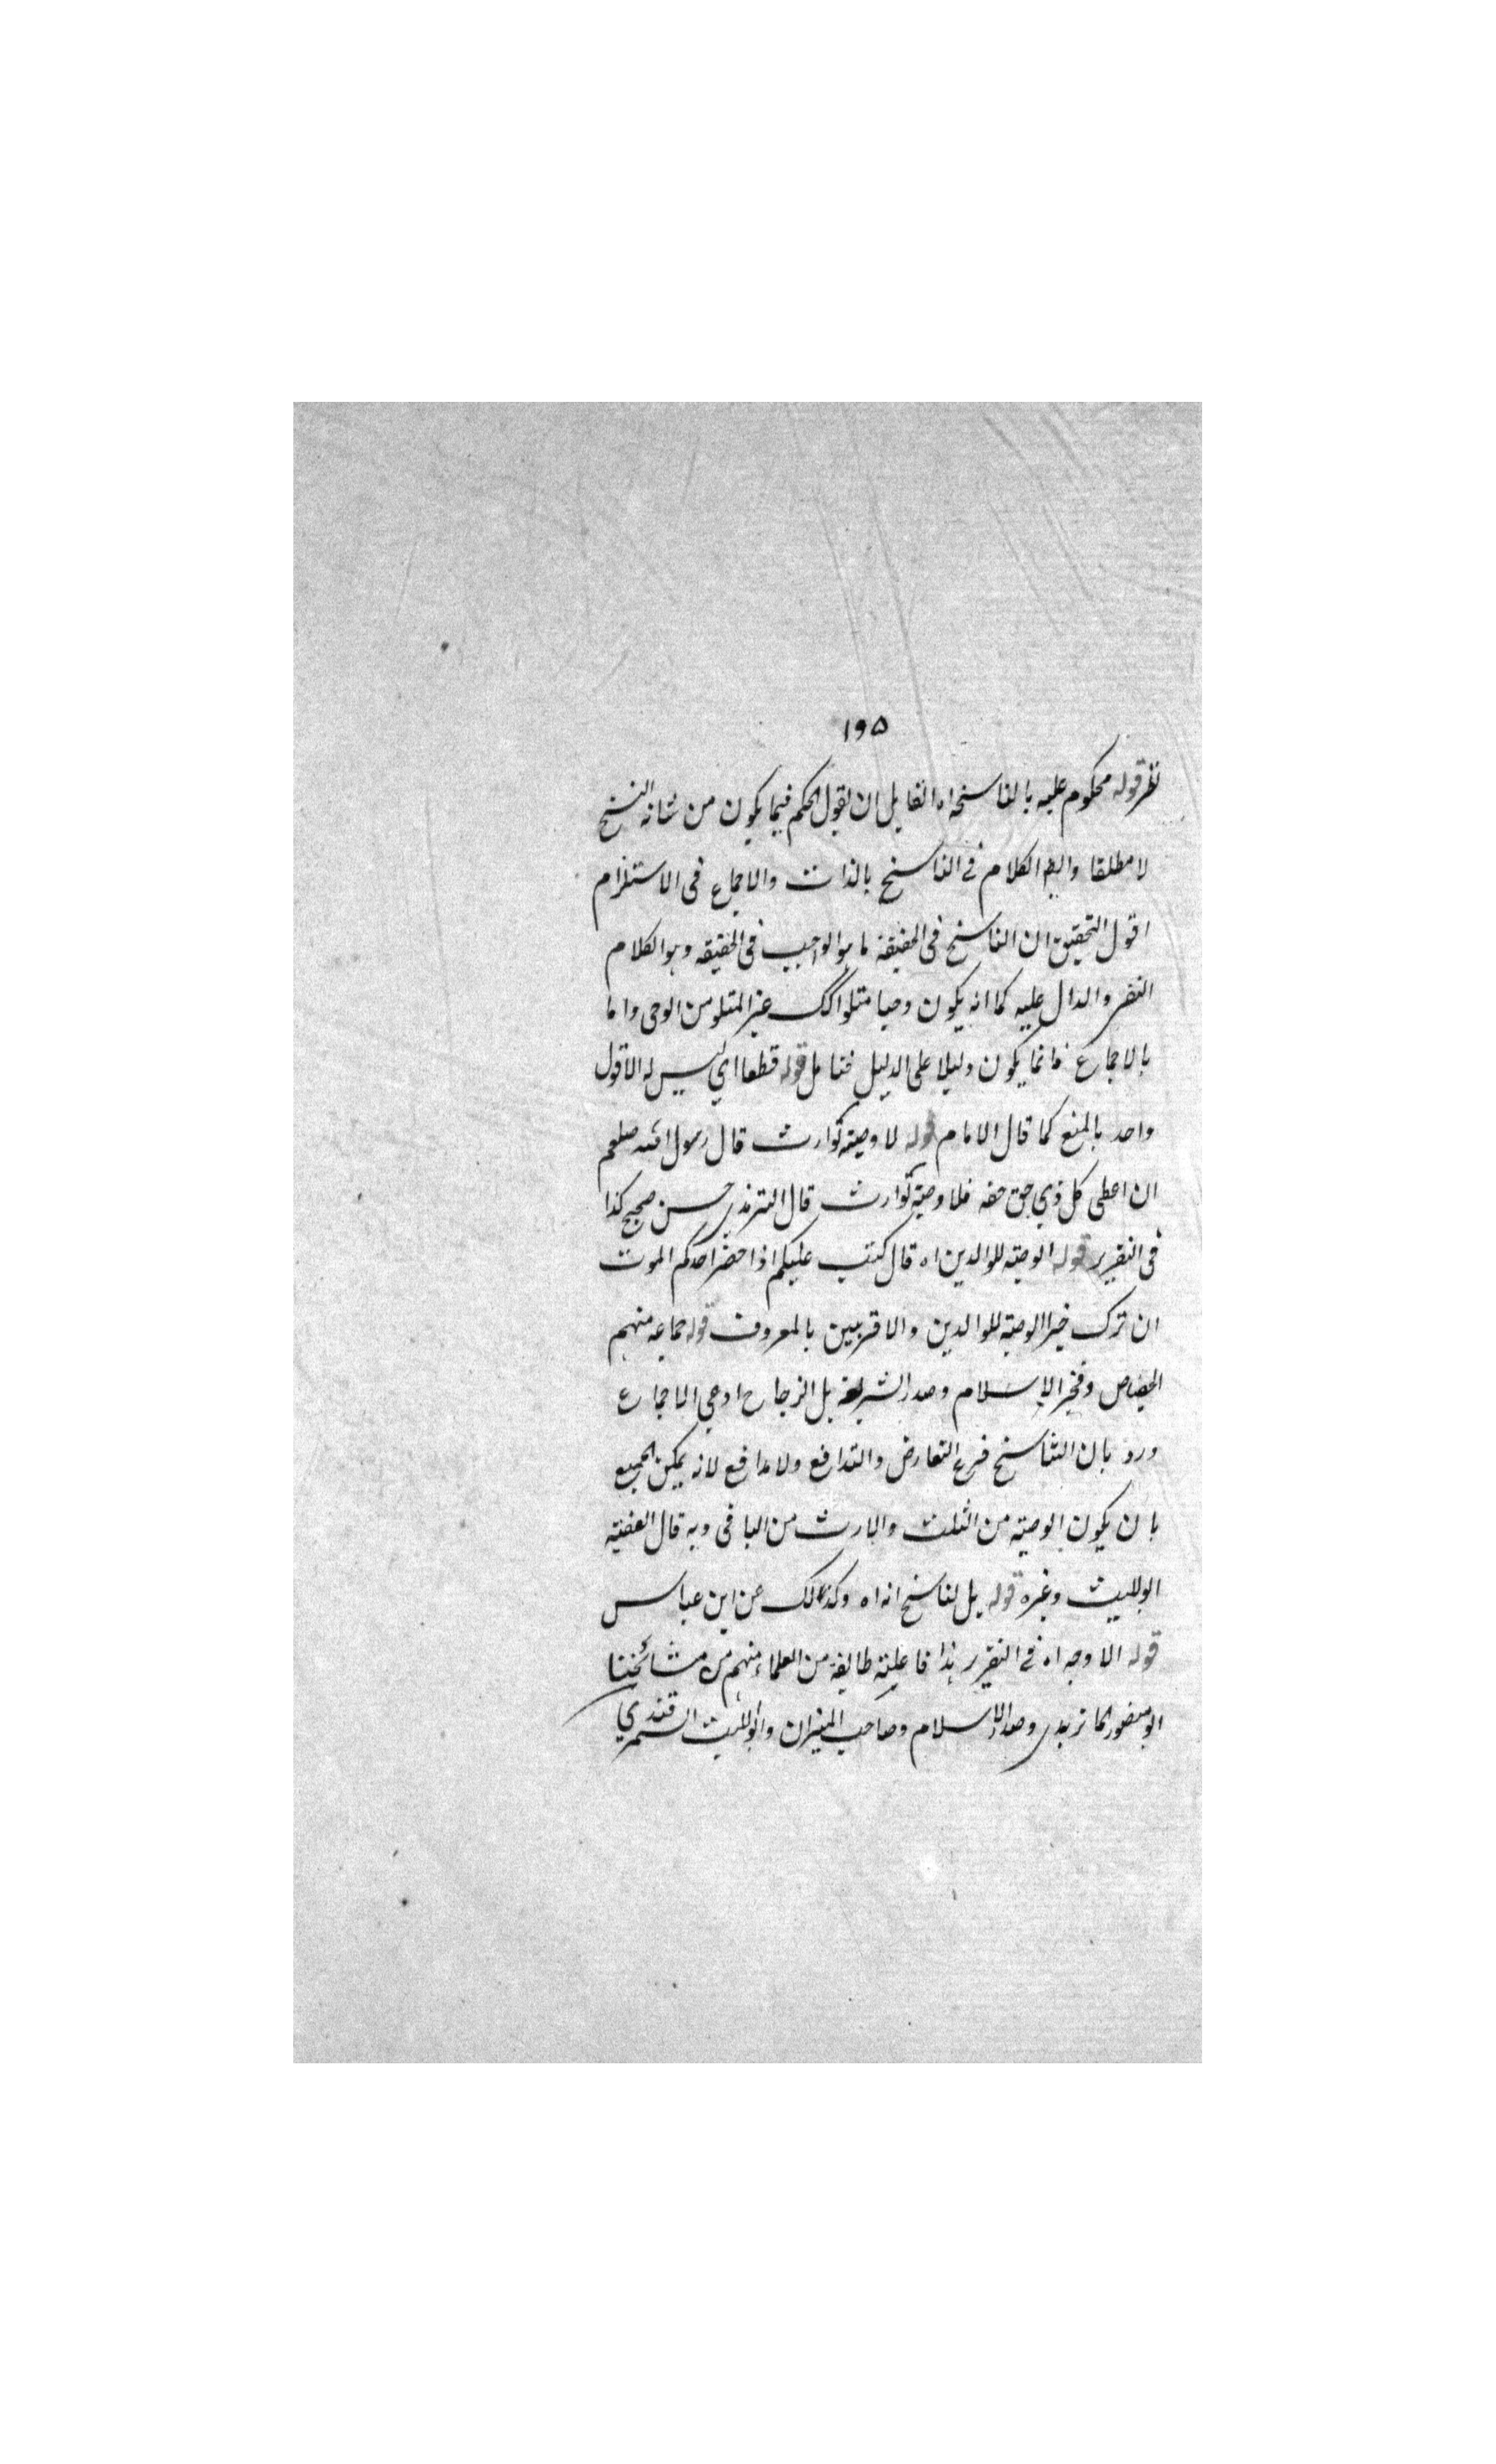 ١٩٥
نظر قوله محكوم عليه بالناسخ اه القايل ان يقول الحكم فيما يكون من شانه النسخ
لا مطلقا وايضا الكلام فى الناسخ بالذات والاجماع فى الاستلزام
اقول التحقيق ان الناسخ فى الحقيقة ما هو الواجب فى الحقيقه وهو الكلام
النفسى والدال عليه كما انه يكون وحيا متلوا كك غير المتلو من الوحى واما
بالاجماع فانما يكون دليلا على الدليل فتامل قوله قطعا اي ليس له الا قول
واحد بالمنع كما قال الامام قوله لا وصيته لوارث قال رسول الله صلعم
ان اعطى كل ذي حق حقه فلا وصية لوارث قال الترمذي حسن صحيح كذا
فى التقرير قوله الوصية للوالدين اه قال كتب عليكم اذا حضر احدكم الموت
ان ترك خيرا الوصية للوالدين والاقربين بالمعروف قوله جماعه منهم
الجصاص وفخر الاسلام وصدر الشريعة بل الزجاج ادعي الاجماع
ورد بان التناسخ فرع التعارض والتدافع ولا مدافع لانه يمكن الجميع
بان يكون الوصيته من الثلث والارث من الباقى وبه قال الفقيه
ابو الليث وغيره قوله بل لناسخ انه اه وكذلك عن ابن عباس
قوله الاوجه اه فى التقرير هذا فاعليته طايفة من العلماء منهم من مشائخنا
ابو منصور الماتريدي وصدر الاسلام وصاحب الميزان وابو الليث السمرقندي